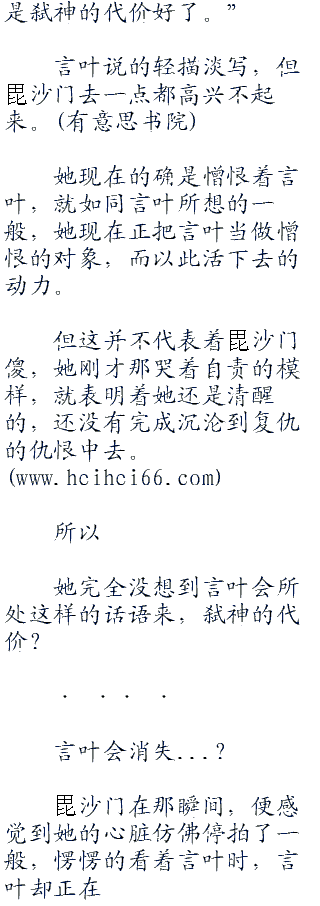 是弑神的代价好了。”
言叶说的轻描淡写，但
毘沙门去一点都高兴不起
来。(有意思书院)
她现在的确是憎恨着言
叶，就如同言叶所想的一
般，她现在正把言叶当做憎
恨的对象，而以此活下去的
动力。
但这并不代表着毘沙门
傻，她刚才那哭着自责的模
样，就表明着她还是清醒
的，还没有完成沉沦到复仇
的仇恨中去。
(www.hcihci66.com)
所以
她完全没想到言叶会所
处这样的话语来，弑神的代
价?
. ... .
言叶会消失...?
毘沙门在那瞬间，便感
觉到她的心脏仿佛停拍了一
般，愣愣的看着言叶时，言
叶却正在